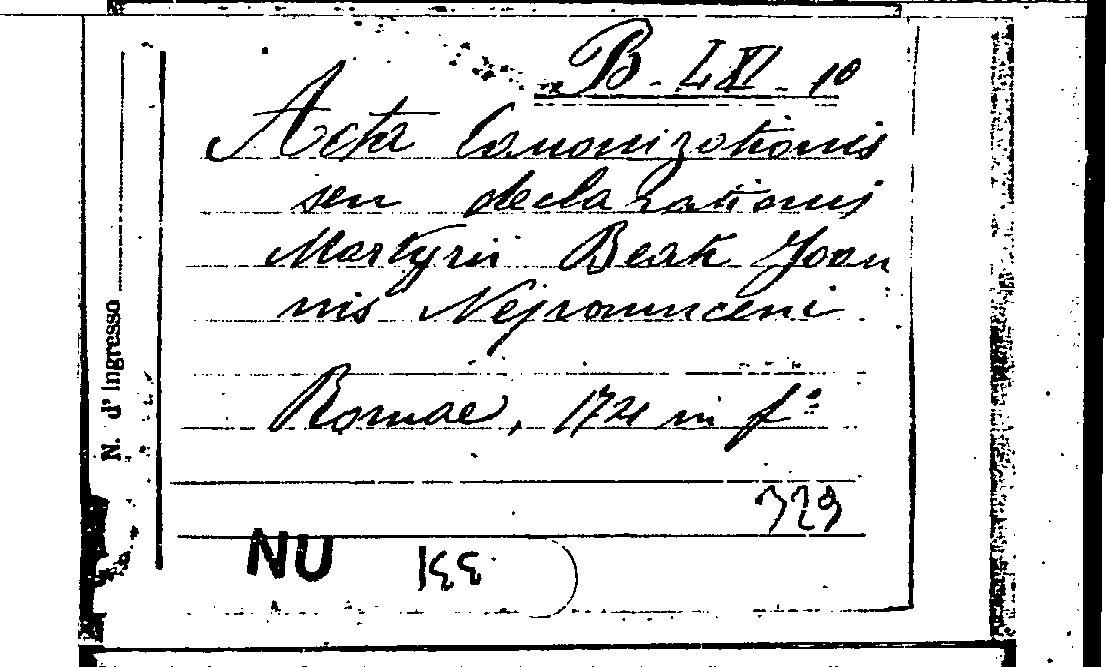 B - LXI - 10
Acta Canonizationis
seu declarationis
Martyrii Beati Joan
nis Nepomuceni
Romae, 1721 in fº
329
NU
N. d'Ingresso